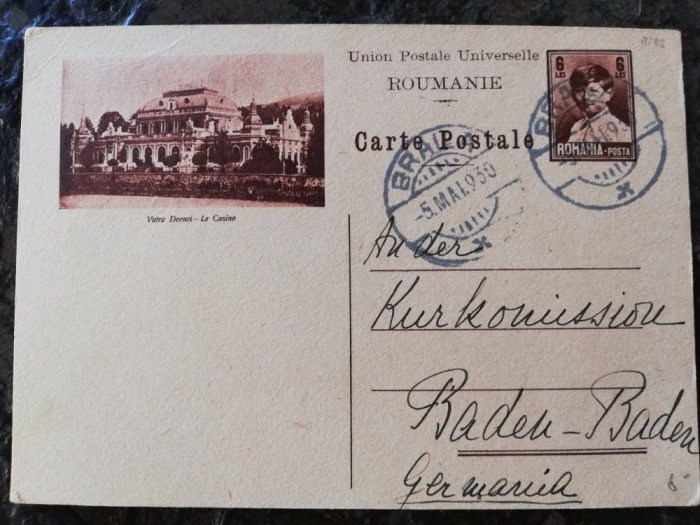 Union Postale Universelle
ROUMANIE
Carte Postale
6 LEI
6 LEI
ROMANIA-POSTA
BRAILA
-5.MAI.930
BRAILA
Vatra Dornei – Le Casino
An der
Kurkomission
Baden-Baden
Germania
6-